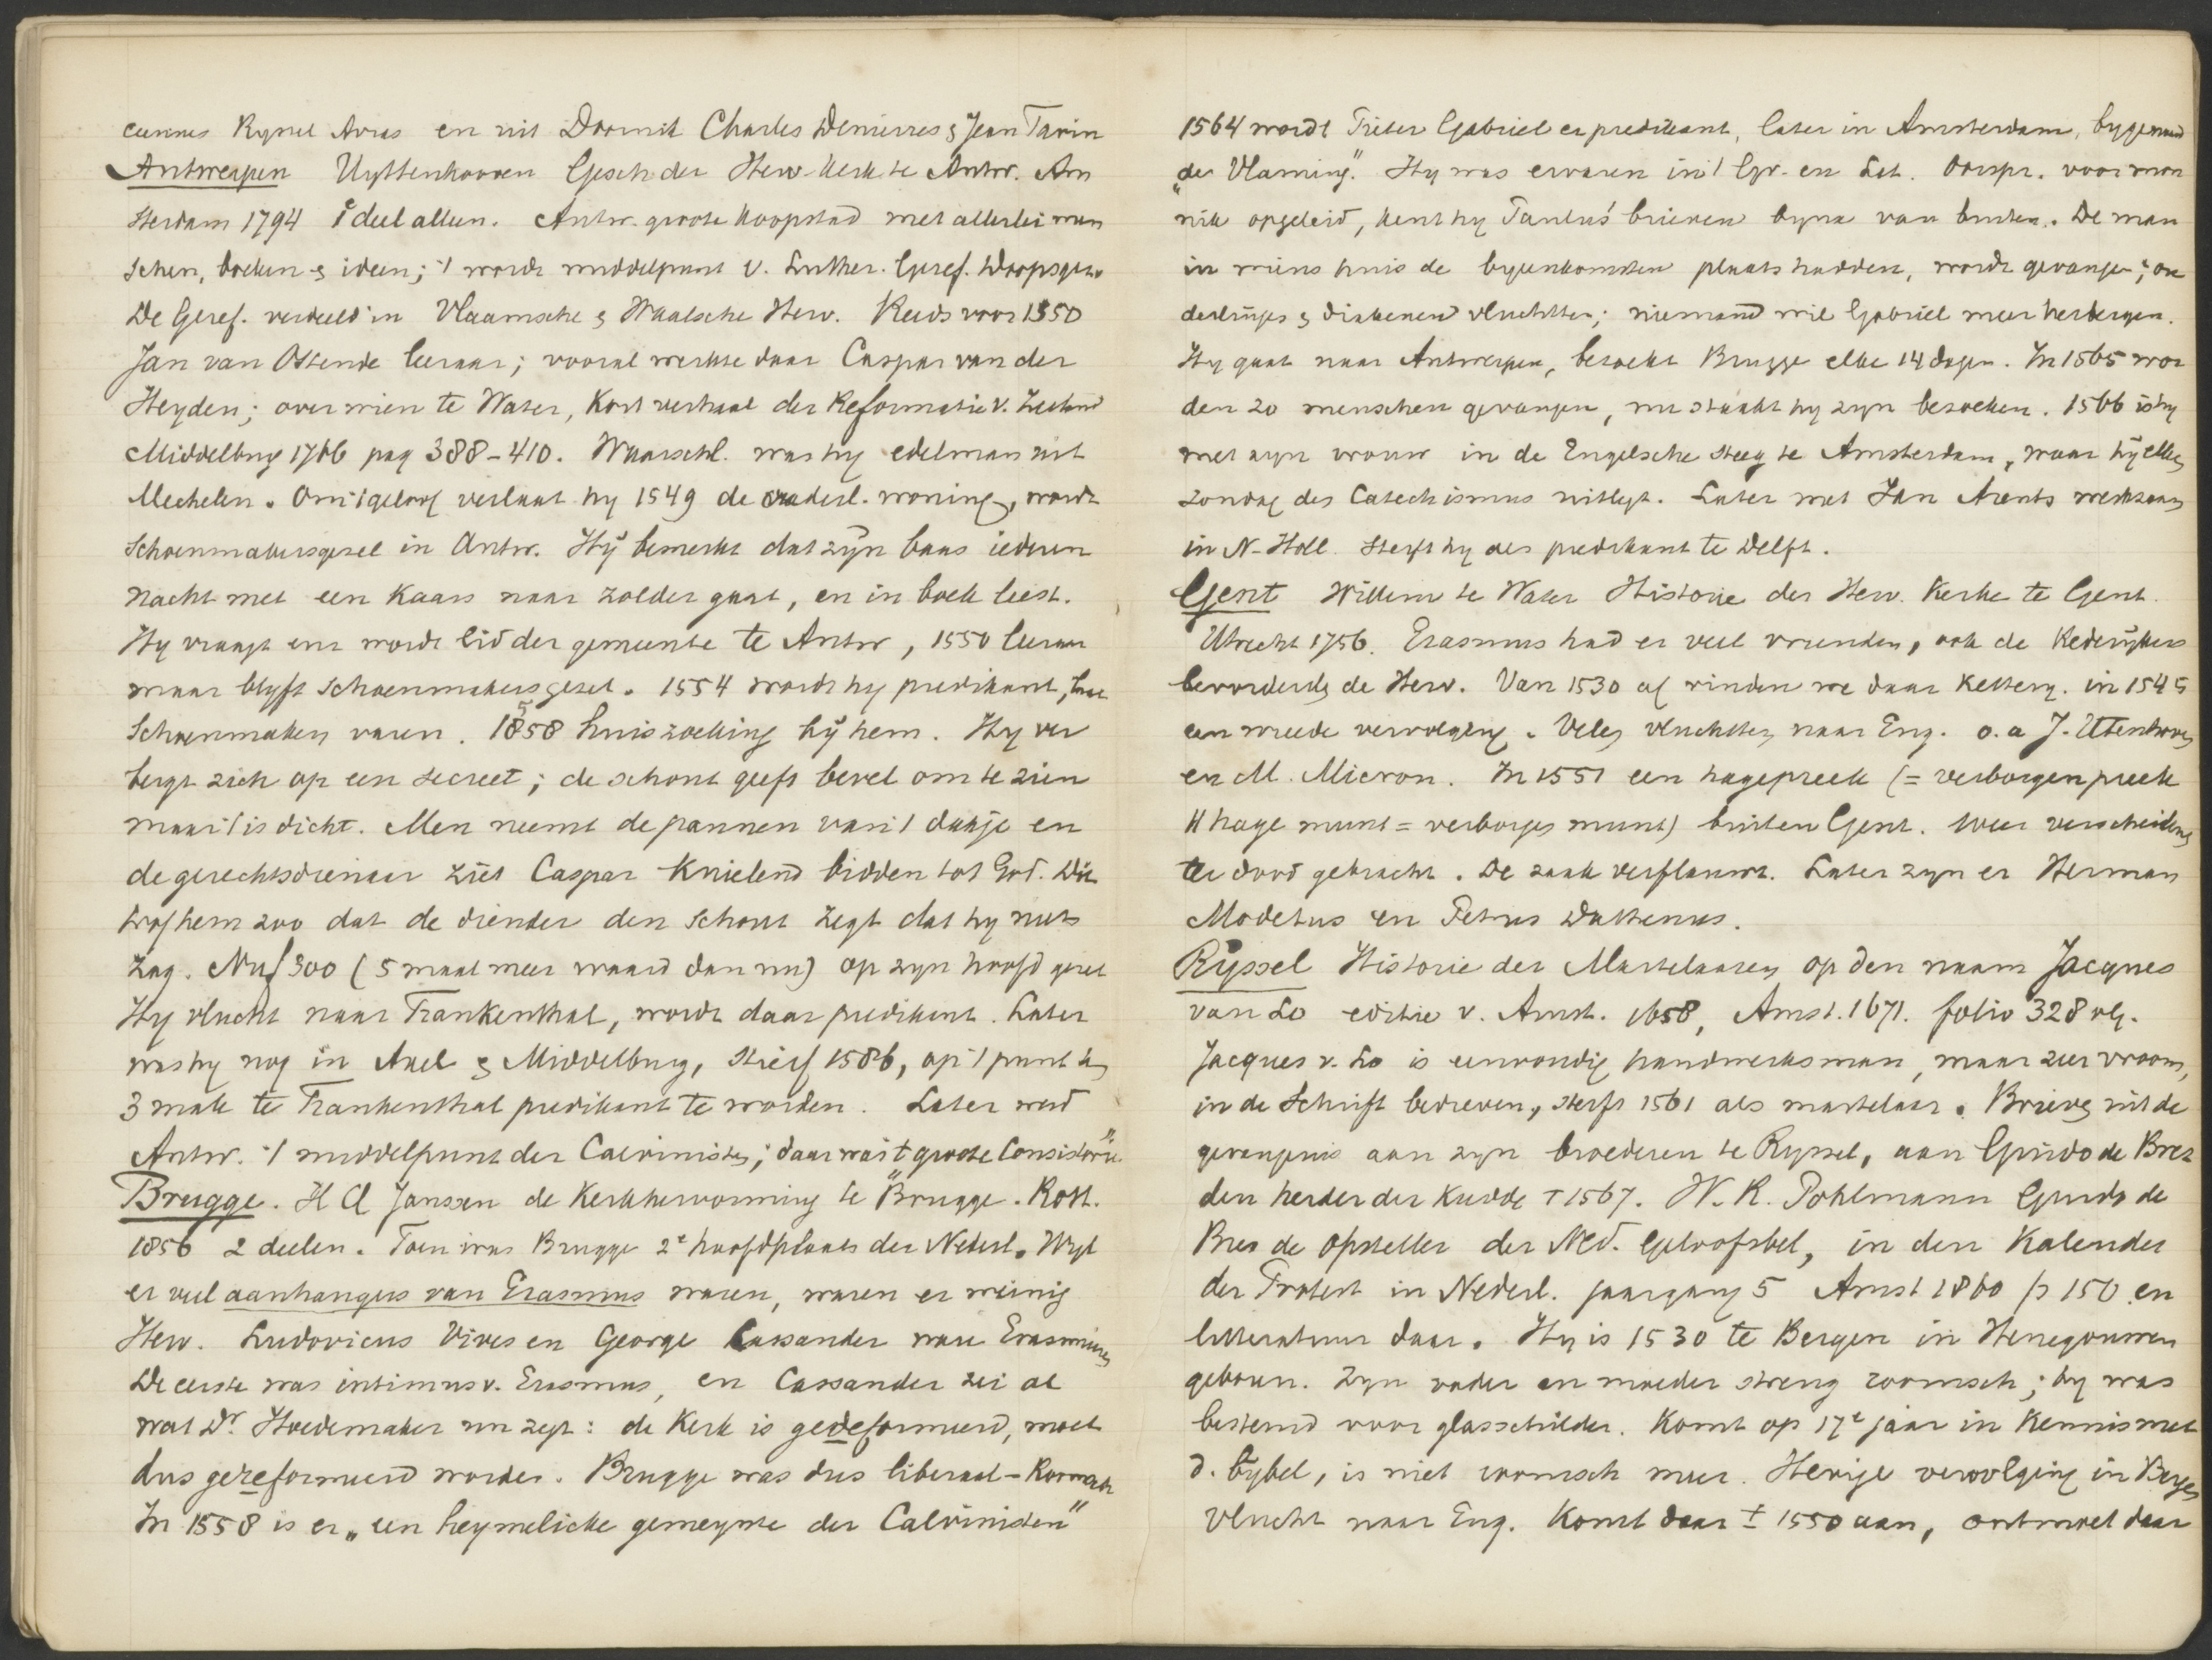 Rynel Avras en uit Doornik Charles Denierres & Jean Tavin
Antwerpen Uyttenhooven Gesch der Herv. Kerk te Antw. Am
sterdam 1794 1e deel alleen. Antw. groote koopstad met allerlei men
schen, boeken & ideen; 't wordt middelpunt v. Luther. Geref. Doopsgez.
De Geref. verdeeld in Vlaamsche & Waalsche Herv. Reeds voor 1550
Jan van Ostende leeraar; vooral werkte daar Caspar van der
Heyden; over wien te Water, Kort verhaal der Reformatie v. Zeeland
Middelburg 1766 pag 388-410. Waarschl. was hy edelman uit
Mechelen. Om 't geloof verlaat hy 1549 de vaderl. woning, wordt
Schoenmakersgezel in Antw. Hÿ bemerkt dat zÿn baas iederen
nacht met een kaars naar zolder gaat, en in boek leest.
Hy vraagt en wordt lid der gemeente te Antw, 1550 leeraar
maar blyft Schoenmakersgezel. 1554 wordt hy predikant, laat
Schoenmaken varen. 1558 huiszoeking bÿ hem. Hy ver
bergt zich op een secreet; de schout geeft bevel om te zien
maar 't is dicht. Men neemt de pannen van 't dakje en
de gerechtsdienaar ziet Caspar knielend bidden tot God. Dit
trof hem zoo dat de diender den Schout zegt dat hy niets
zag. Nu ƒ300 (5 maal meer waard dan nu) op zyn hoofd gezet
Hy vlucht naar Frankenthal, wordt daar predikant. Later
was hy nog in Axel & Middelburg, stierf 1586, op 't punt de
3 maal te Frankenthal predikant te worden. Later werd
Antw. 't middelpunt der Calvinisten; daar was "t groote Consistorie"
Brugge. H Q Janssen de Kerkhervorming te Brugge. Rott.
1856 2 deelen. Toen was Brugge 2e hoofdplaats der Nederl. Wyl
er veel aanhangers van Erasmus waren, waren er weinig
Herv. Ludovicus Vives en George Cassander ware Erasmianen
De eerste was intimus v. Erasmus, en Cassander zei al
wat Dr. Hoedemaker nu zegt: de Kerk is gedeformeerd, moet
dus gereformeerd worden. Brugge was dus liberaal-Roomsch
In 1558 is er „een heymelicke gemeynte der Calvinisten"
1564 wordt Pieter Gabriel er predikant, later in Amsterdam, bygenaamd
„de Vlaming." Hy was ervaren in 't Gr. en Lat. Oorspr. voor mon
nik opgeleid, kent hy Paulus' brieven byna van buiten. De man
in wiens huis de byeenkomsten plaats hadden, wordt gevangen; ou
derlinges & diakenen vluchtten; niemand wil Gabriel meer herbergen.
Hy gaat naar Antwerpen, bezoekt Brugge elke 14 dagen. In 1565 wor
den 20 menschen gevangen, nu staakt hy zyn bezoeken. 1566 is hy
met zyn vrouw in de Engelsche steeg te Amsterdam, waar hÿ elken
zondag des Catechismus uitlegt. Later met Jan Arents werkzaam
in N-Holl. sterft hy als predikant te Delft.
Gent Willem te Water Historie der Herv. Kerke te Gent.
Utrecht 1756. Erasmus had er veel vrienden, ook de Rederÿkers
bevorderde de Herv. Van 1530 af vinden we daar ketterij. in 1545
een wreede vervolging. Velen vluchtten naar Eng. o.a J. Utenhoven
en M. Micron. In 1551 een hagepreek (= verborgen preek
H hage munt = verborgen munt) buiten Gent. Weer verscheidene
ter dood gebracht. De zaak verflauwt. Later zyn er Herman
Modetus en Petrus Dathenus.
Ryssel Historie der Martelaaren op den naam Jacques
van Lo editie v. Amst. 1658, Amst. 1671. folio 328 vlg.
Jacques v. Lo is eenvoudig handwerksman, maar zeer vroom,
in de Schrift bedreven, sterft 1561 als martelaar. Brieven uit de
gevangenis aan zyn broederen te Ryssel, aan Guido de Brez
den herder der kudde † 1567. W. R. Pohlmann Guido de
Bres de opsteller der Ned. Geloofsbel, in den Kalender
der Protest in Nederl. jaargang 5 Amst 1860 p 150 en
litteratuur daar. Hy is 1530 te Bergen in Henegouwen
geboren. Zyn vader en moeder streng roomsch; hy was
bestemd voor glasschilder. Komt op 17e jaar in kennis met
d. bÿbel, is niet roomsch meer. Hevige vervolging in Bergen
vlucht naar Eng. Komt daar ± 1550 aan, ontmoet daar